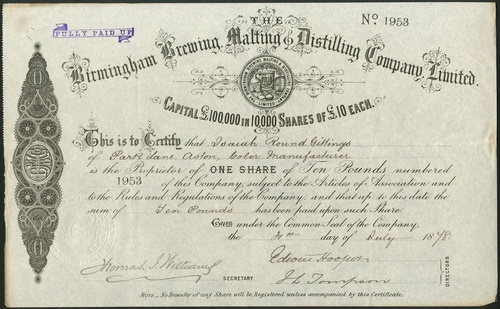 THE
No 1953
FULLY PAID UP
Birmingham Brewing, Malting & Distilling Company, Limited.
CAPITAL £100,000 IN 10,000 SHARES OF £10 EACH.
This is to Certify that Isaiah Round Gittings
of Park Lane, Aston, Color Manufacturer
is the Proprietor of ONE SHARE of Ten Pounds numbered
1953 of this Company, subject to the Articles of Association and
to the Rules and Regulations of the Company; and that up to this date the
sum of Ten Pounds has been paid upon such Share
GIVEN under the Common Seal of the Company,
the day of July 1898
Thomas J. Williams
SECRETARY.
Edwin Hooper
DIRECTORS
NOTE.—No Transfer of any Share will be Registered unless accompanied by this Certificate.